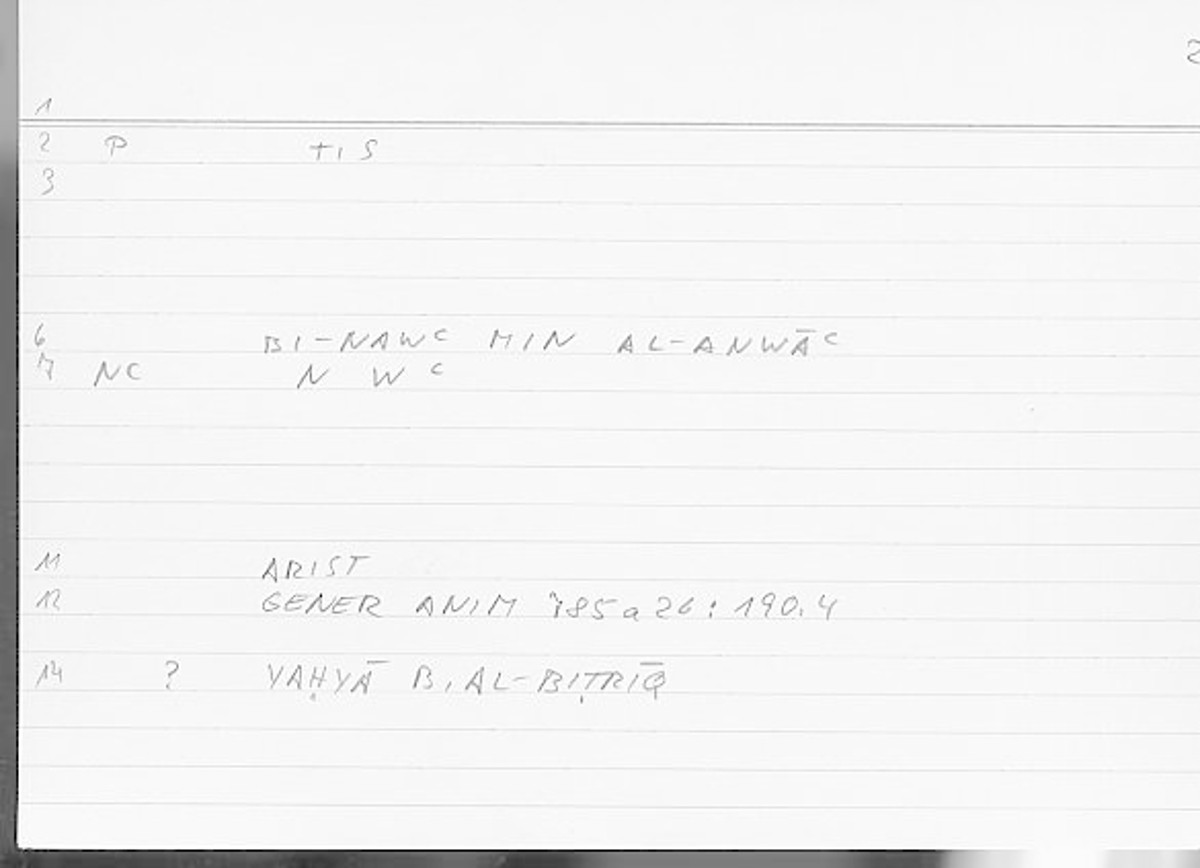 2
1
2 P TIS
3
6 BI-NAWᶜ MIN AL-ANWĀᶜ
7 NC N W ᶜ
11 ARIST
12 GENER ANIM 785a26:190.4
14 ? YAḤYĀ B. AL-BIṬRĪQ